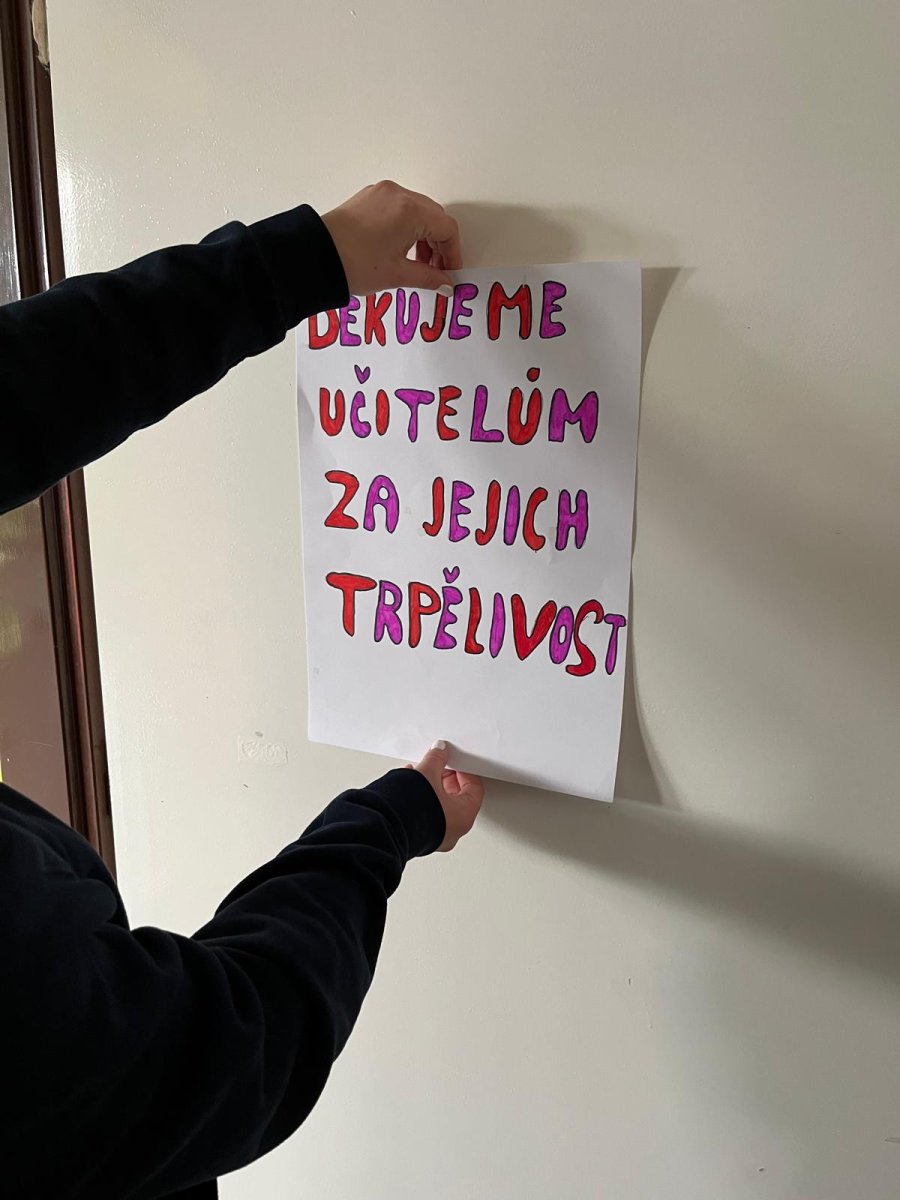 DĚKUJEME
UČITELŮM
ZA JEJICH
TRPĚLIVOST